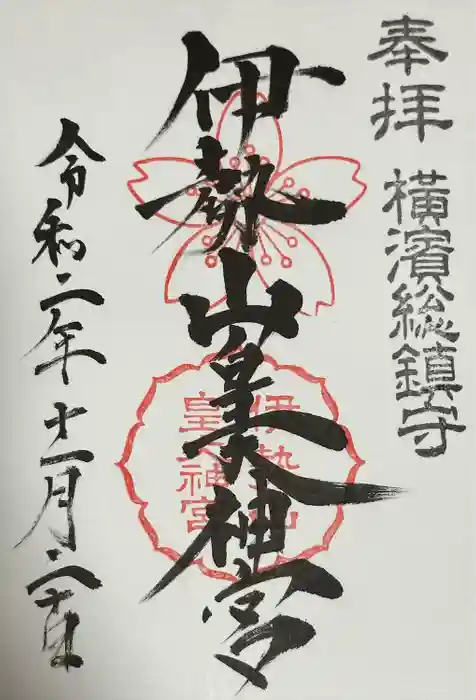 奉拝
横濱総鎮守
伊勢山皇大神宮
伊勢山
皇大神宮
令和二年十一月